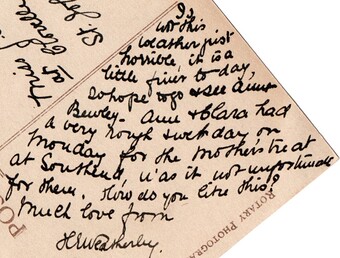 Is
not this
weather just
horrible, it is a
little finer to day,
so hope to go & see Aunt
Bewley- Anne & Clara had
a very rough wet day on
Monday for the Mothers treat
at Southend, was it not unfortunate
for them. How do you like this?
Much love from
H E Weatherley.
Miss
at
St
PO
ROTARY PHOTOGRAP